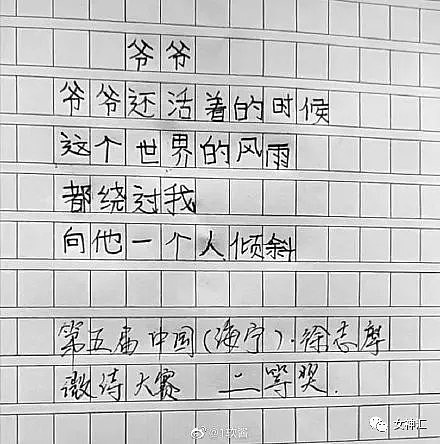 爷爷
爷爷还活着的时候
这个世界的风雨
都绕过我
向他一个人倾斜
第五届中国(海宁)·徐志摩
微诗大赛 二等奖.
@1软酱
女神汇